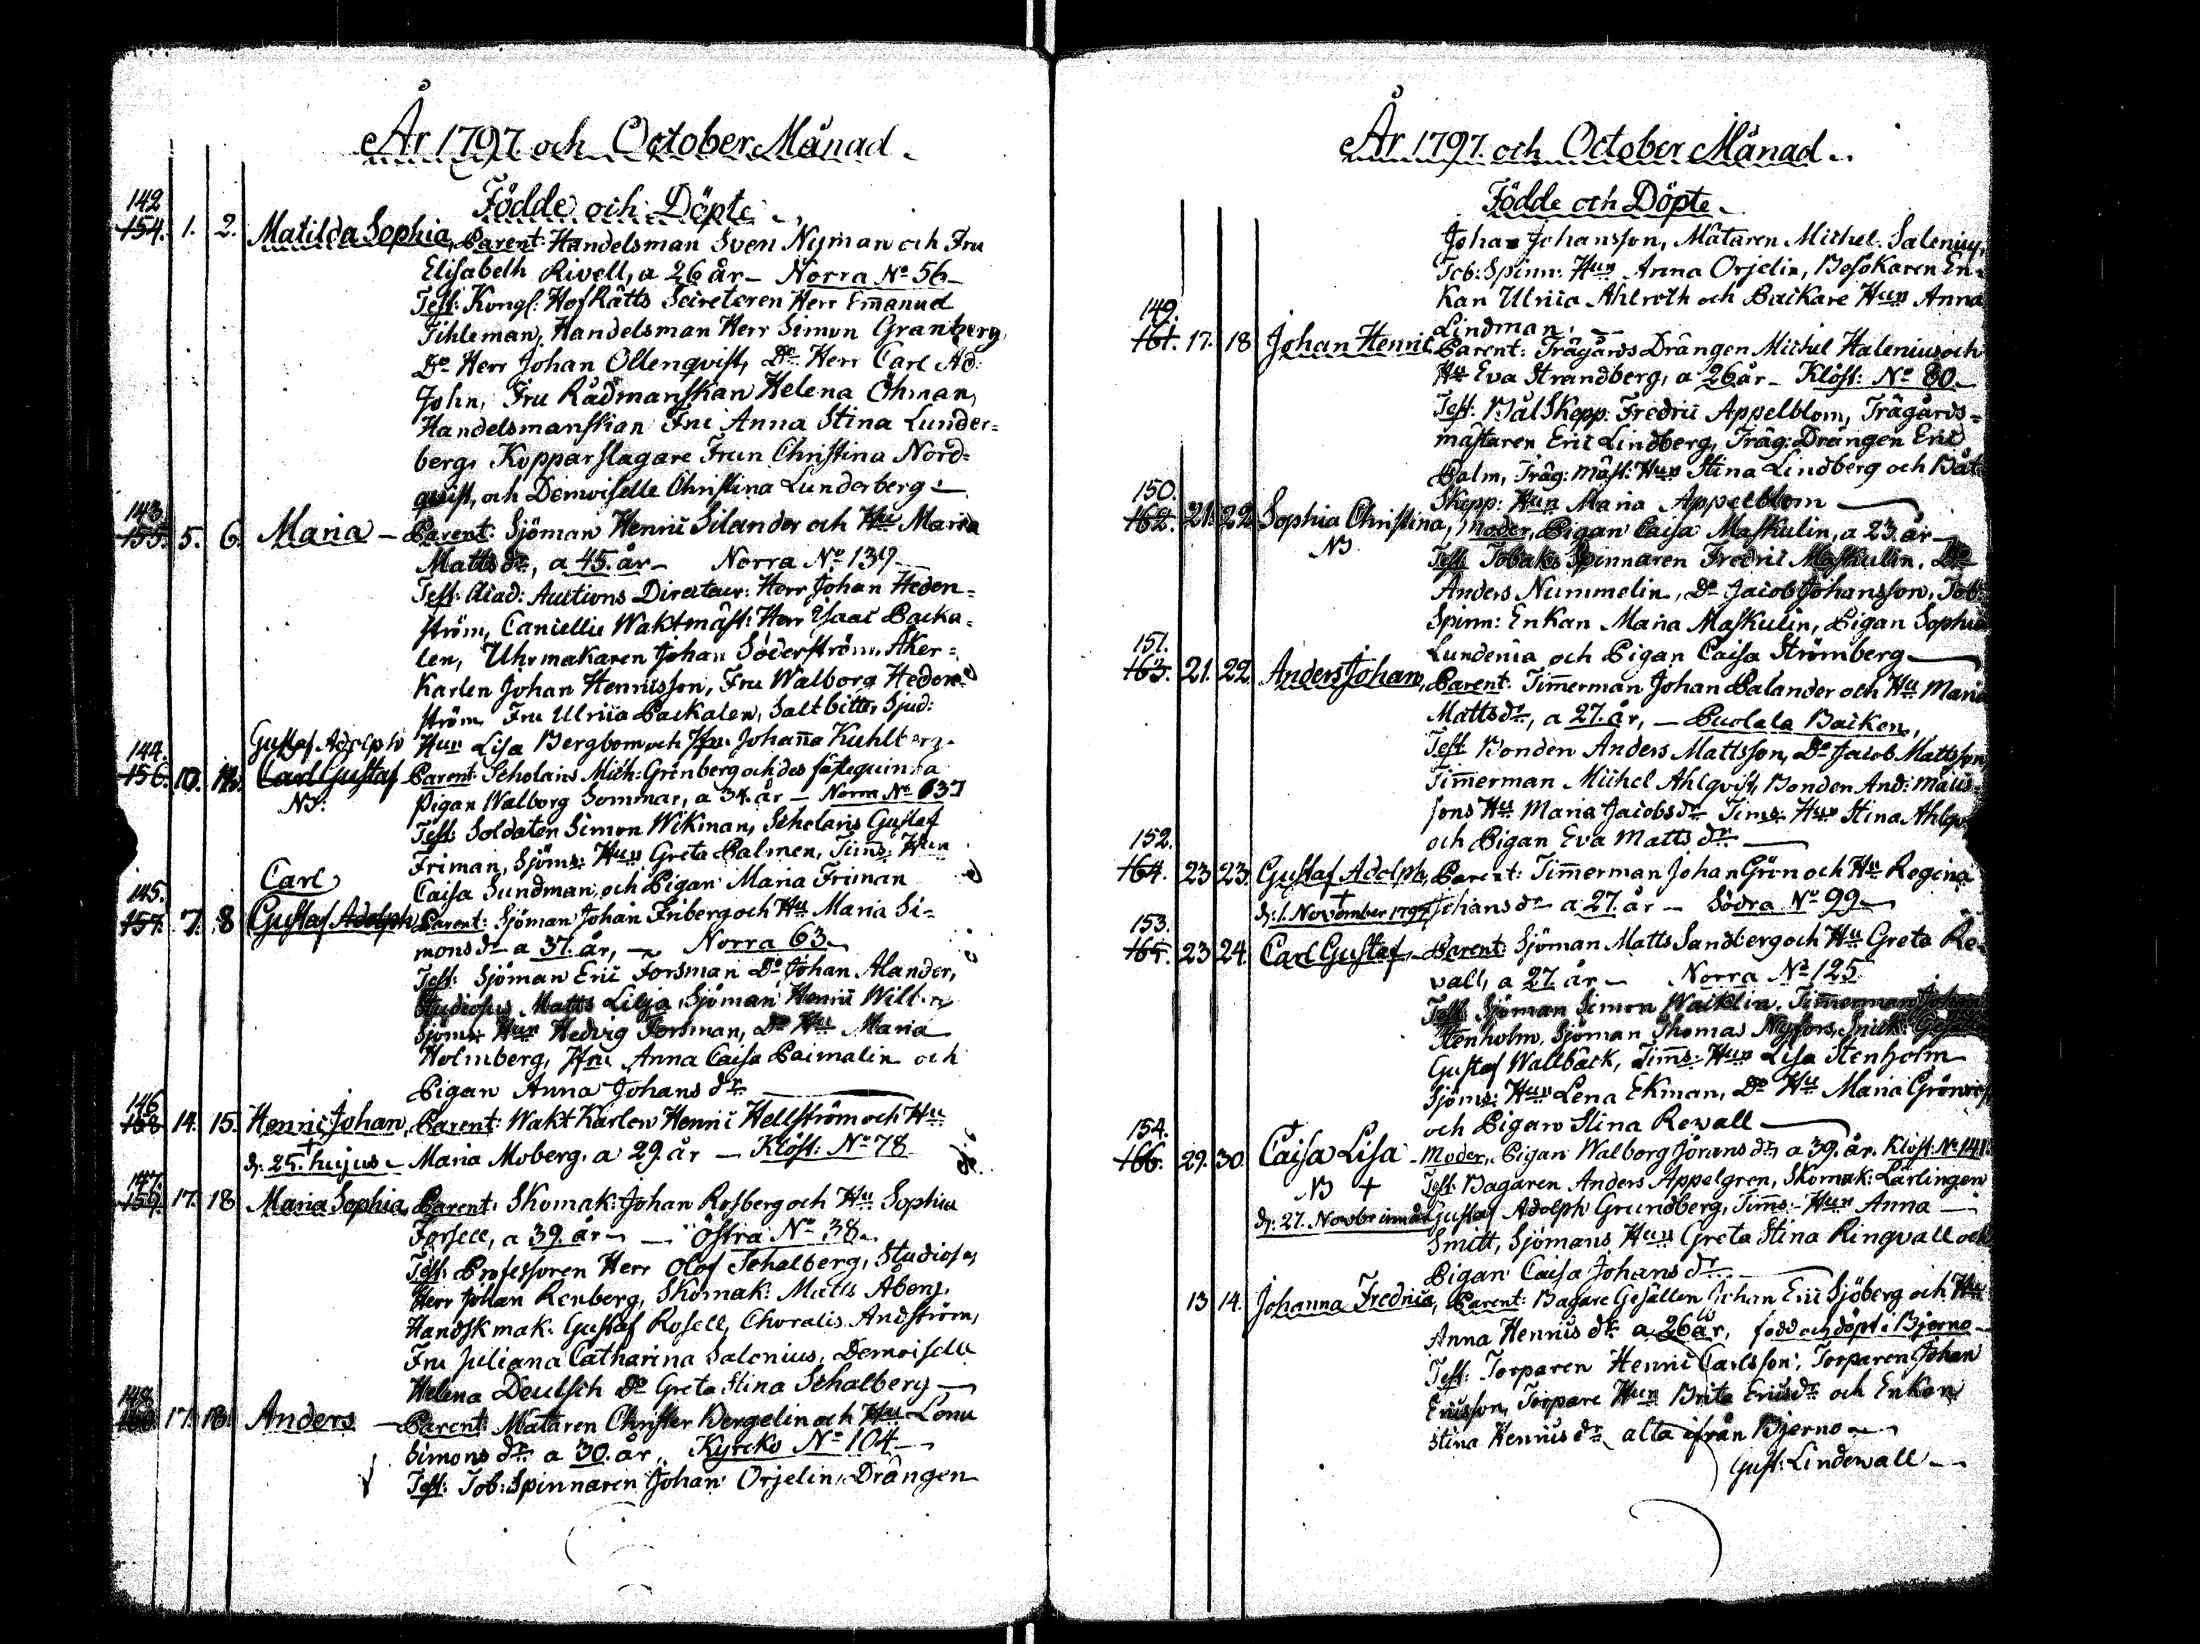 År 1797. och October Månad.
Födde och Döpte.
142
154. 1. 2. Matilda Sophia, Parent: Handelsman Sven Nyman och Fru
Elisabeth Rivell, a 26 år – Norra No 56 –
Test: Kongl: HofRätts Secreteren Herr Emanuel
Tihleman, Handelsman Herr Simon Grantberg,
Do Herr Johan Ollenqvist, Do Herr Carl Ad:
John, Fru Rådmanskan Helena Öhman,
Handelsmanskan Fru Anna Stina Lunder=
berg, Kopparslagare Frun Christina Nord=
qvist, och Demoiselle Christina Lunderberg –
143.
155. 5. 6. Maria – Parent: Sjöman Henric Silander och Hu Maria
Matts dr, a 45. år – Norra No 139
Test: Acad: Auctions Directeur: Herr Johan Heden=
ström, Cancellie Waktmäst: Herr Isaac Packa=
len, Uhrmakaren Johan Söderström, Åker=
Karlen Johan Henricsson, Fru Walborg Heden=
ström, Fru Ulrica Packalen, Saltbitter Sjud:
Gustaf Adolph Hun Lisa Bergbom och Jfru Johanna Kuhlberg.
144.
156. 10. Carl Gustaf Parent: Scholaris Mich: Grönberg och des fästequinna
NB: Pigan Walborg Sommar, a 34. år – Norra No 637
Test: Soldaten Simon Wikman, Scholaris Gustaf
Friman, Sjöms: Hun Greta Palmen, Tims: Hun
Carl Caisa Sundman och Pigan Maria Friman
145.
157. 7. 8 Gustaf Adolph Parent: Sjöman Johan Friberg och Hu Maria Si=
mons dr a 37. år, – Norra 63.
Test: Sjöman Eric Forsman Do Johan Alander,
Studiosus Matts Lilja, Sjöman Henric
Sjöms: Hun Hedvig Forsman, Do Hu Maria
Holmberg, Jfru Anna Caisa Paimalin och
Pigan Anna Johans dr.
146
158 14. 15. Henric Johan, Parent: Wakt Karlen Henric Hellström och Hu
d: 25. hujus – Maria Moberg, a 29. år – Klöst: No 78
147.
159. 17. 18 Maria Sophia, Parent: Skomak: Johan Rosberg och Hu Sophia
Forsell, a 39. år – Östra No 38.
Test: Professoren Herr Olof Schalberg, Studios,
Herr Johan Renberg, Skomak: Matts Åberg,
Handskmak: Gustaf Rosell, Choralis Andström,
Fru Juliana Catharina Salonius, Demoiselle
Helena Deutsch Do Greta Stina Schalberg –
148
160 17. 18. Anders – Parent: Mätaren Christer Bergelin och Hu Lena
Simons dr a 30. år, Kyrcko No 104 –
Test: Tob: Spinnaren Johan Orjelin, Drängen
År 1797. och October Månad.
Födde och Döpte.
Johan Johansson, Mätaren Michel Salenius,
Tob: Spinn: Hun Anna Orjelin, Besökaren En=
kan Ulrica Ahlroth och Backare Hun Anna
Lindman.
149.
161. 17. 18 Johan Henric Parent: Trägårds Drängen Michel Halenius och
Hu Eva Strandberg, a 26 år – Klöst: No 80 –
Test: Båt Skepp: Fredric Appelblom, Trägårds=
mästaren Eric Lindberg, Träg: Drängen Eric
Palm, Träg: Mäst: Hun Stina Lindberg och Båt
Skepp: Hun Maria Appelblom
150.
162. 21. 22 Sophia Christina, Moder, Pigan Caisa Maskulin, a 23. år –
NB Test: Tobaks Spinnaren Fredric Maskulin, Do
Anders Nummelin, Do Jacob Johansson, Tob:
Spinn: Enkan Maria Maskulin, Pigan Sophia
Lundenia och Pigan Caisa Strömberg –
151.
163. 21. 22 Anders Johan, Parent: Timmerman Johan Palander och Hu Maria
Matts dr, a 27. år, – Puolala Backen,
Test: Bonden Anders Mattsson, Do Jacob Mattsson
Timmerman Michel Ahlqvist, Bonden And: Matts=
sons Hu Maria Jacobs dr Tims: Hun Stina
och Pigan Eva Matts dr –
152.
164. 23 23. Gustaf Adolph, Parent: Timmerman Johan Grön och Hu Regina
d: 1. November 1797 Johans dr a 27. år – Södra No 99 –
153.
165. 23 24. Carl Gustaf – Parent: Sjöman Matts Sandberg och Hu Greta Re=
vall, a 27. år – Norra No 125
Test: Sjöman Simon Wacklin, Timmerman Johan
Stenholm, Sjöman Thomas Nyfors, Smidts
Gustaf Wallbäck, Tims: Hun Lisa Stenholm
Sjöms: Hun Lena Ekman, Do Hu Maria
och Pigan Stina Revall –
154.
166. 29. 30 Caisa Lisa – Moder, Pigan Walborg Jörans dr, a 39. år. Klöst: No 141.
NB + Test: Bagaren Anders Appelgren, Skomak: Lärlingen
d: 27. Novbr Gustaf Adolph Grundberg, Tims: Hun Anna –
Smitt, Sjömans Hun Greta Stina Ringvall och
Pigan Caisa Johans dr.
13 14. Johanna Fredrica, Parent: Bagare Gesällen Johan Eric Sjöberg och Hu
Anna Henrics dr a 26 år, född och döpt i Bjerno –
Test: Torparen Henric Carlsson, Torparen Johan
Ericsson, Torpare Hun Brita Erics dr och Enkan
Stina Henrics dr, alla ifrån Bjerno –
Gust: Lindewall –